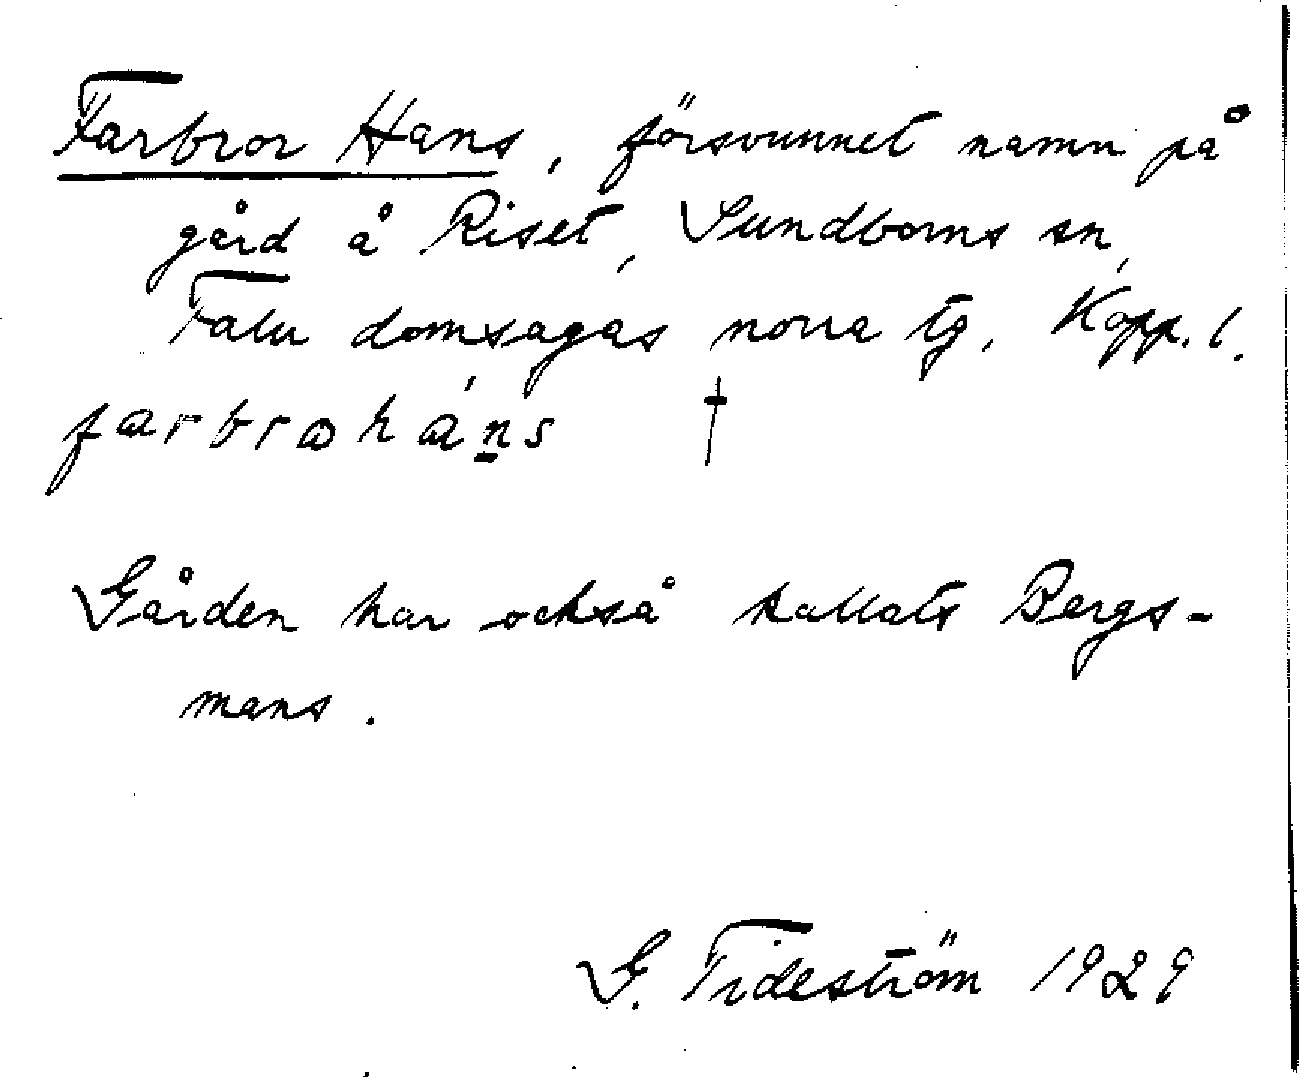 Farbror Hans, försvunnet namn på
gård å Riset, Sundborns sn,
Falu domsagas norra tg, Kopp. l.
farbrωhá̱ns †
Gården har också kallats Bergs-
mans.
G. Tideström 1929